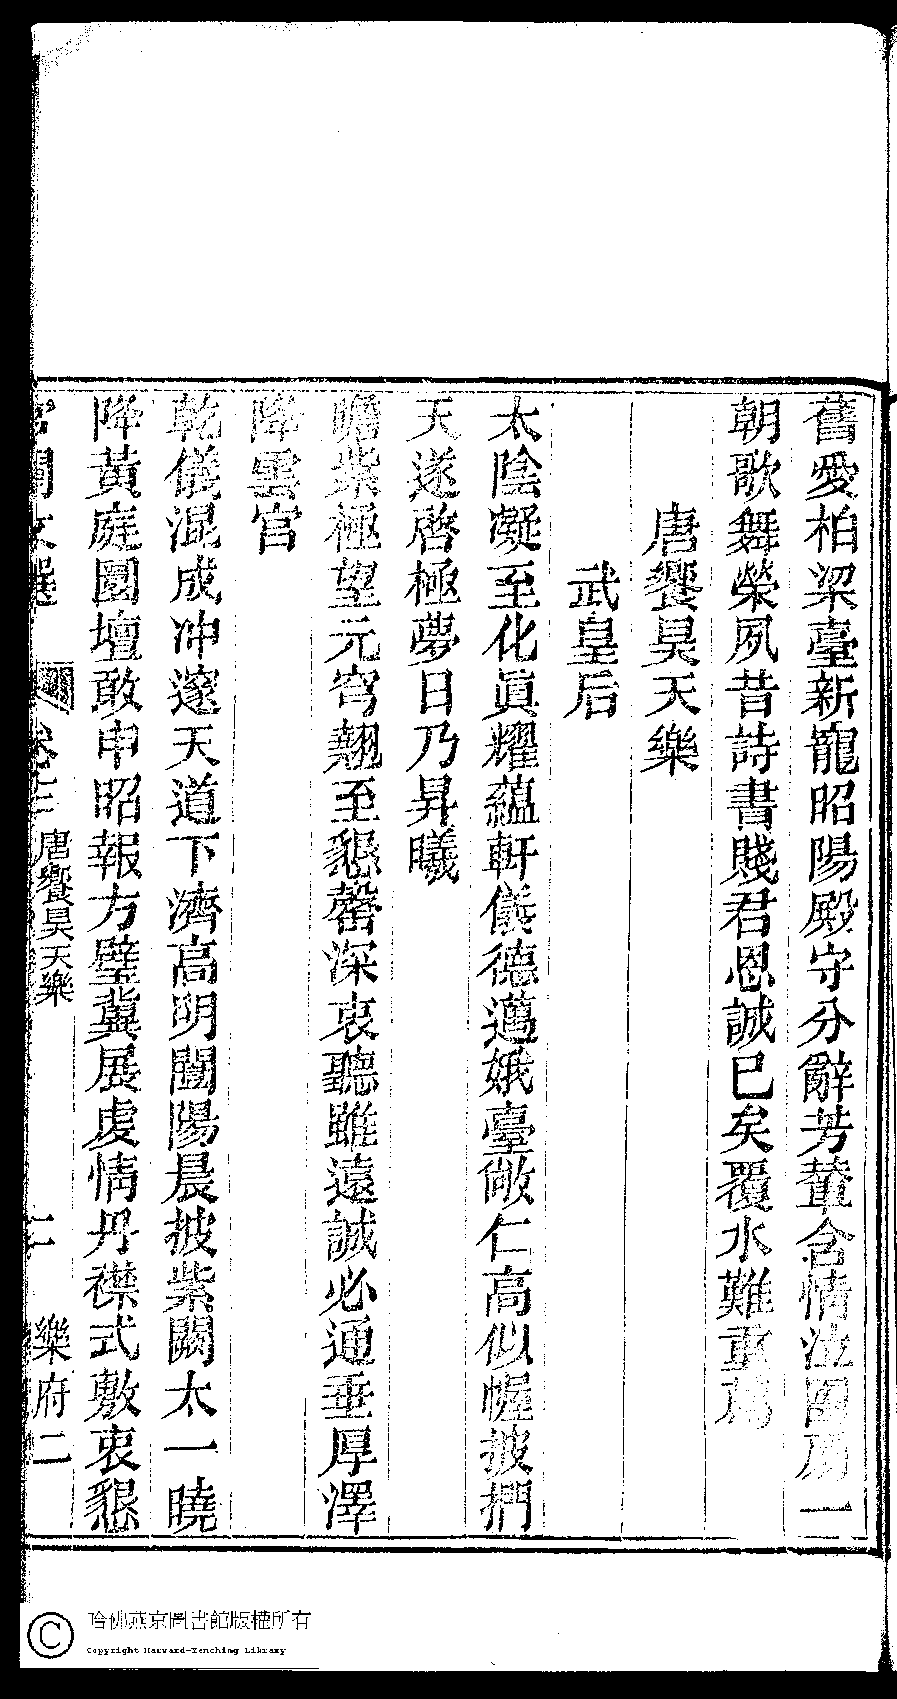 舊愛柏梁臺新寵昭陽殿守分辭芳輦含情泣團扇一
朝歌舞榮夙昔詩書賤君恩誠已矣覆水難重薦
唐饗昊天樂
武皇后
太陰凝至化眞耀蘊軒儀德邁娥臺敞仁高似幄披捫
天遂啓極夢日乃昇曦
瞻紫極望元穹翹至懇罄深衷聽雖遠誠必通垂厚澤
降雲宮
乾儀混成冲邃天道下濟高明闓陽晨披紫闕太一曉
降黃庭圜壇敢申昭報方璧冀展虔情丹襟式敷衷懇
宮閨文選 卷三 唐饗昊天樂 二 樂府二
哈佛燕京圖書館版權所有
Copyright Harvard-Yenching Library